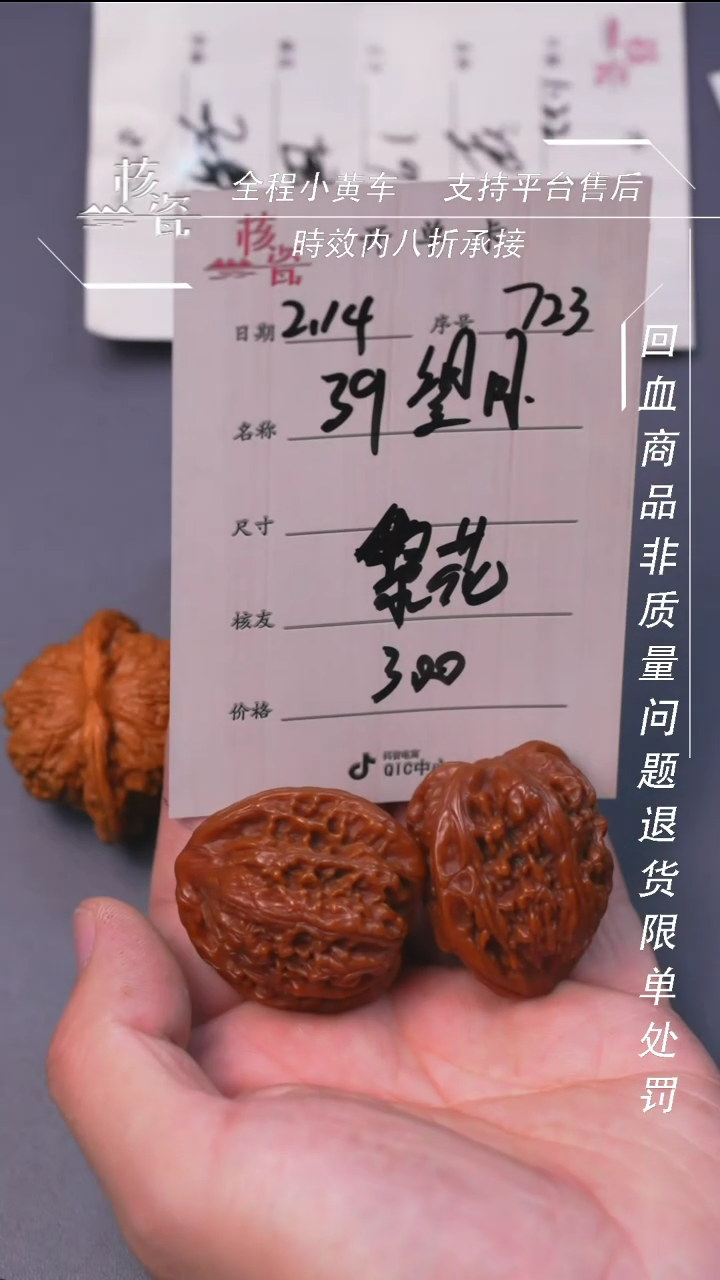 核瓷
全程小黄车 支持平台售后
時效内八折承接
核瓷
日期 2.14 序号 723
名称 39 望月
尺寸
核友 梨花
价格 300
抖音电商
QIC中心
回血商品非质量问题退货限单处罚